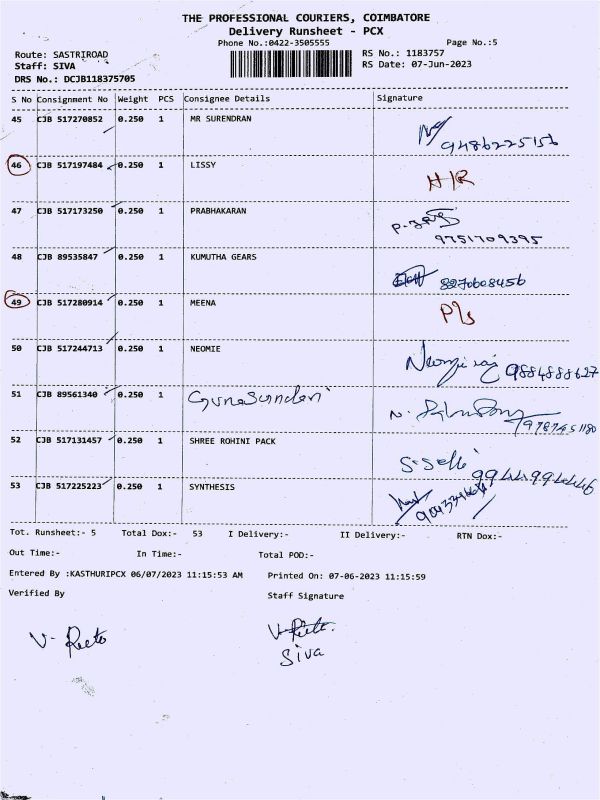 THE PROFESSIONAL COURIERS, COIMBATORE
Delivery Runsheet - PCX
Phone No.:0422-3505555 Page No.:5
Route: SASTRIROAD RS No.: 1183757
Staff: SIVA RS Date: 07-Jun-2023
DRS No.: DCJB118375705
S No Consignment No Weight PCS Consignee Details Signature
45 CJB 517270852 0.250 1 MR SURENDRAN
9486225156
46 CJB 517197484 0.250 1 LISSY
H/R
47 CJB 517173250 0.250 1 PRABHAKARAN
9751709395
48 CJB 89535847 0.250 1 KUMUTHA GEARS
8270608456
49 CJB 517280914 0.250 1 MEENA
P/s
50 CJB 517244713 0.250 1 NEOMIE
9884888627
51 CJB 89561340 0.250 1 Gunasundari
9787451180
52 CJB 517131457 0.250 1 SHREE ROHINI PACK
S. Selvi
9944994446
53 CJB 517225223 0.250 1 SYNTHESIS
Tot. Runsheet:- 5 Total Dox:- 53 I Delivery:- II Delivery:- RTN Dox:-
Out Time:- In Time:- Total POD:-
Entered By :KASTHURIPCX 06/07/2023 11:15:53 AM Printed On: 07-06-2023 11:15:59
Verified By Staff Signature
Siva